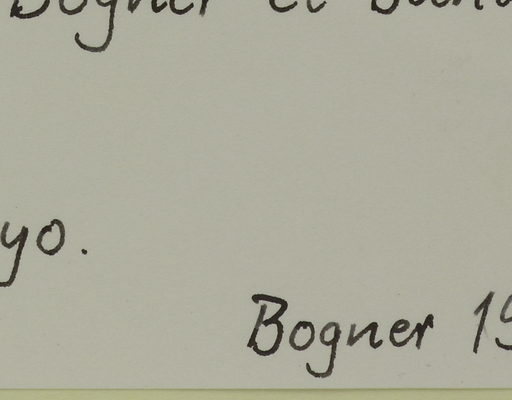 Bogner et
yo.
Bogner 19